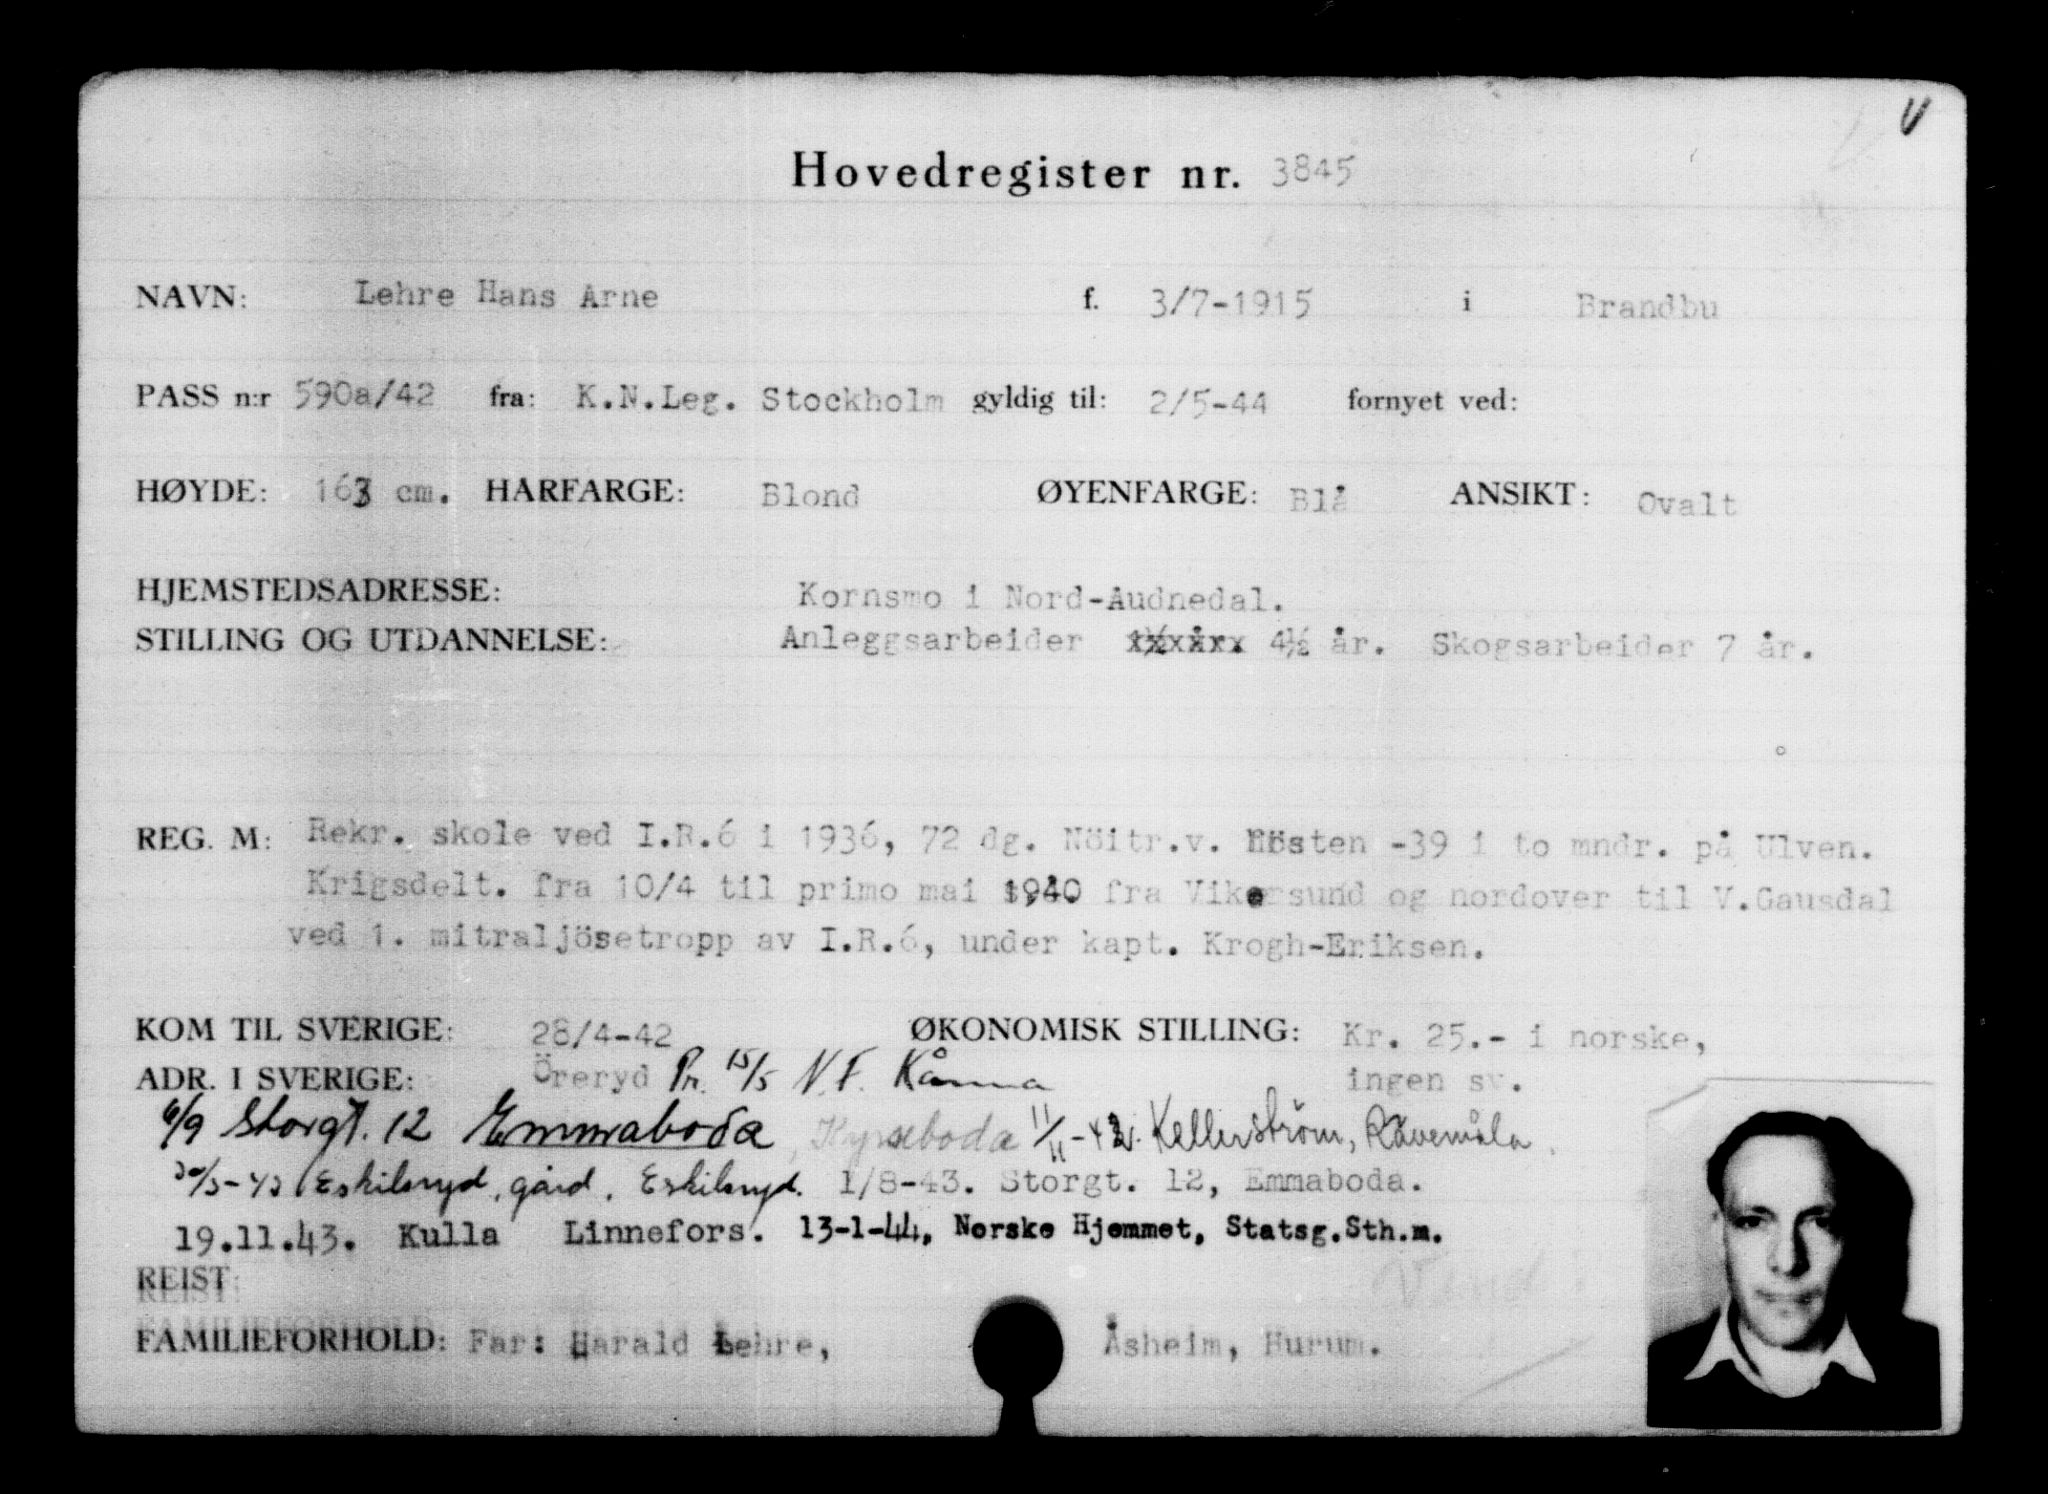 Hovedregister nr. 3845
NAVN: Lehre Hans Arne f. 3/7-1915 i Brandbu
PASS n:r 590a/42 fra: K.N.Leg. Stockholm gyldig til: 2/5-44 fornyet ved:
HØYDE: 163 cm. HARFARGE: Blond ØYENFARGE: Blå ANSIKT: Ovalt
HJEMSTEDSADRESSE: Kornsmo i Nord-Audnedal.
STILLING OG UTDANNELSE: Anleggsarbeider 4½ år. Skogsarbeider 7 år.
REG. M: Rekr. skole ved I.R.6 i 1936, 72 dg. Nöitr.v. Hösten -39 i to mndr. på Ulven.
Krigsdelt. fra 10/4 til primo mai 1940 fra Vikersund og nordover til V.Gausdal
ved 1. mitraljösetropp av I.R.6, under kapt. Krogh-Eriksen.
KOM TIL SVERIGE: 28/4-42 ØKONOMISK STILLING: Kr. 25.- i norske,
ADR. I SVERIGE: Öreryd Pr. 15/5 N.F. Kånna ingen sv.
6/9 Storgt. 12 Emmaboda, 11/11-42. Kellerström, Rävemåla.
Eskilsryd, gård, Eskilsryd. 1/8-43. Storgt. 12, Emmaboda.
19.11.43. Kulla Linnefors. 13-1-44, Norske Hjemmet, Statsg.Sth.m.
REIST:
FAMILIEFORHOLD: Far: Harald Lehre, Åsheim, Hurum.